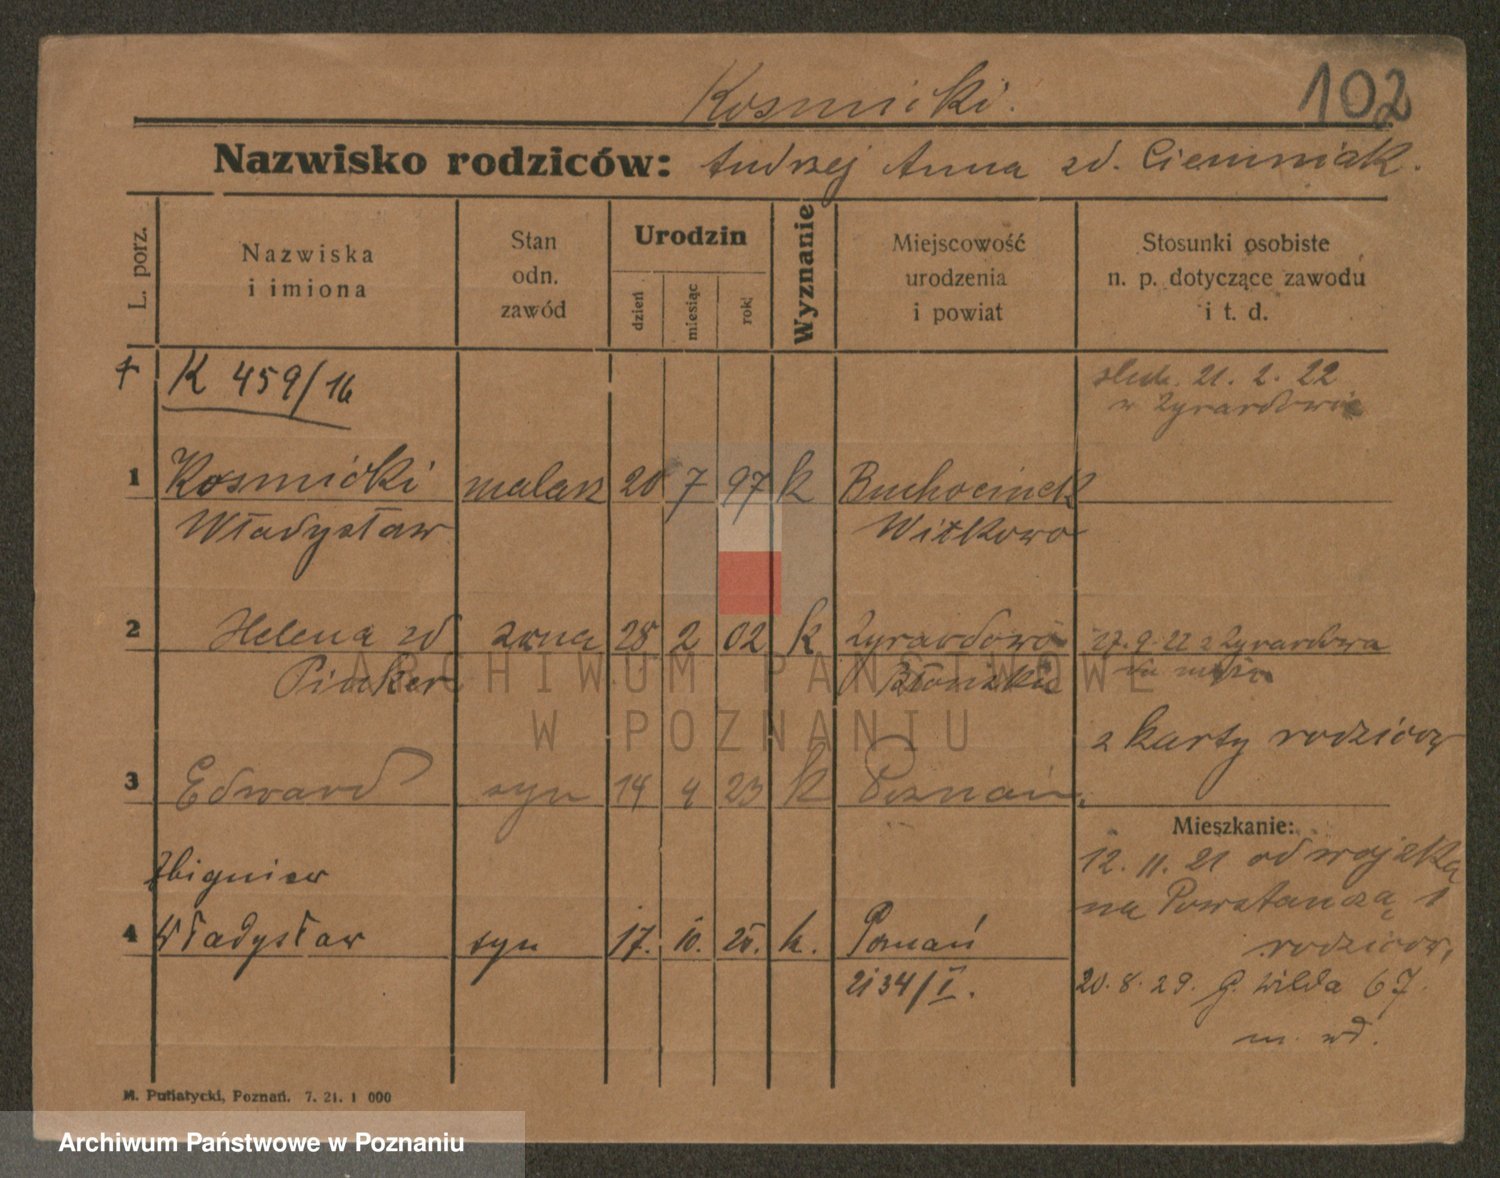 Kosmicki.
102
Nazwisko rodziców: Andrzej Anna zd. Ciemniak.
L. porz.
Nazwiska
i imiona
Stan
odn.
zawód
Urodzin
dzień
miesiąc
rok
Wyznanie
Miejscowość
urodzenia
i powiat
Stosunki osobiste
n. p. dotyczące zawodu
i t. d.
K 459/16
21. 2. 22
w Żyrardowie
1 Kosmicki malarz 20 7 97 k Buchocinek
Władysław Witkowo
2 Helena zd żona 28 2 02 k Żyrardowo 27. 9. 22 z Żyrardowa
Pinker Błońskie
z karty rodziców
3 Edward syn 14 4 23 k Poznań.
Mieszkanie:
12. 11. 21 od wojska
na Powstańczą 1
rodziców,
Zbigniew
4 Władysław syn 17. 10. k. Poznań
2134/I.
20. 8. 29. G. Wilda 67.
m. wł.
M. Putiatycki, Poznań. 7. 21. 1 000
ARCHIWUM PAŃSTWOWE
W POZNANIU
Archiwum Państwowe w Poznaniu